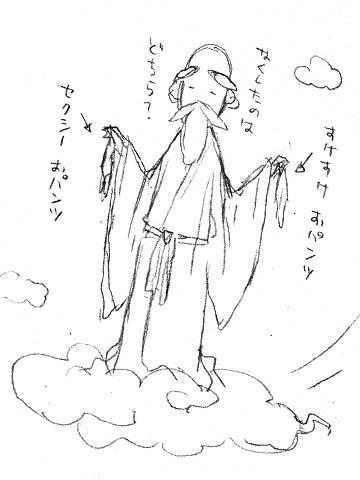 なくしたのは
どちら？
すけすけ おパンツ
セクシー おパンツ